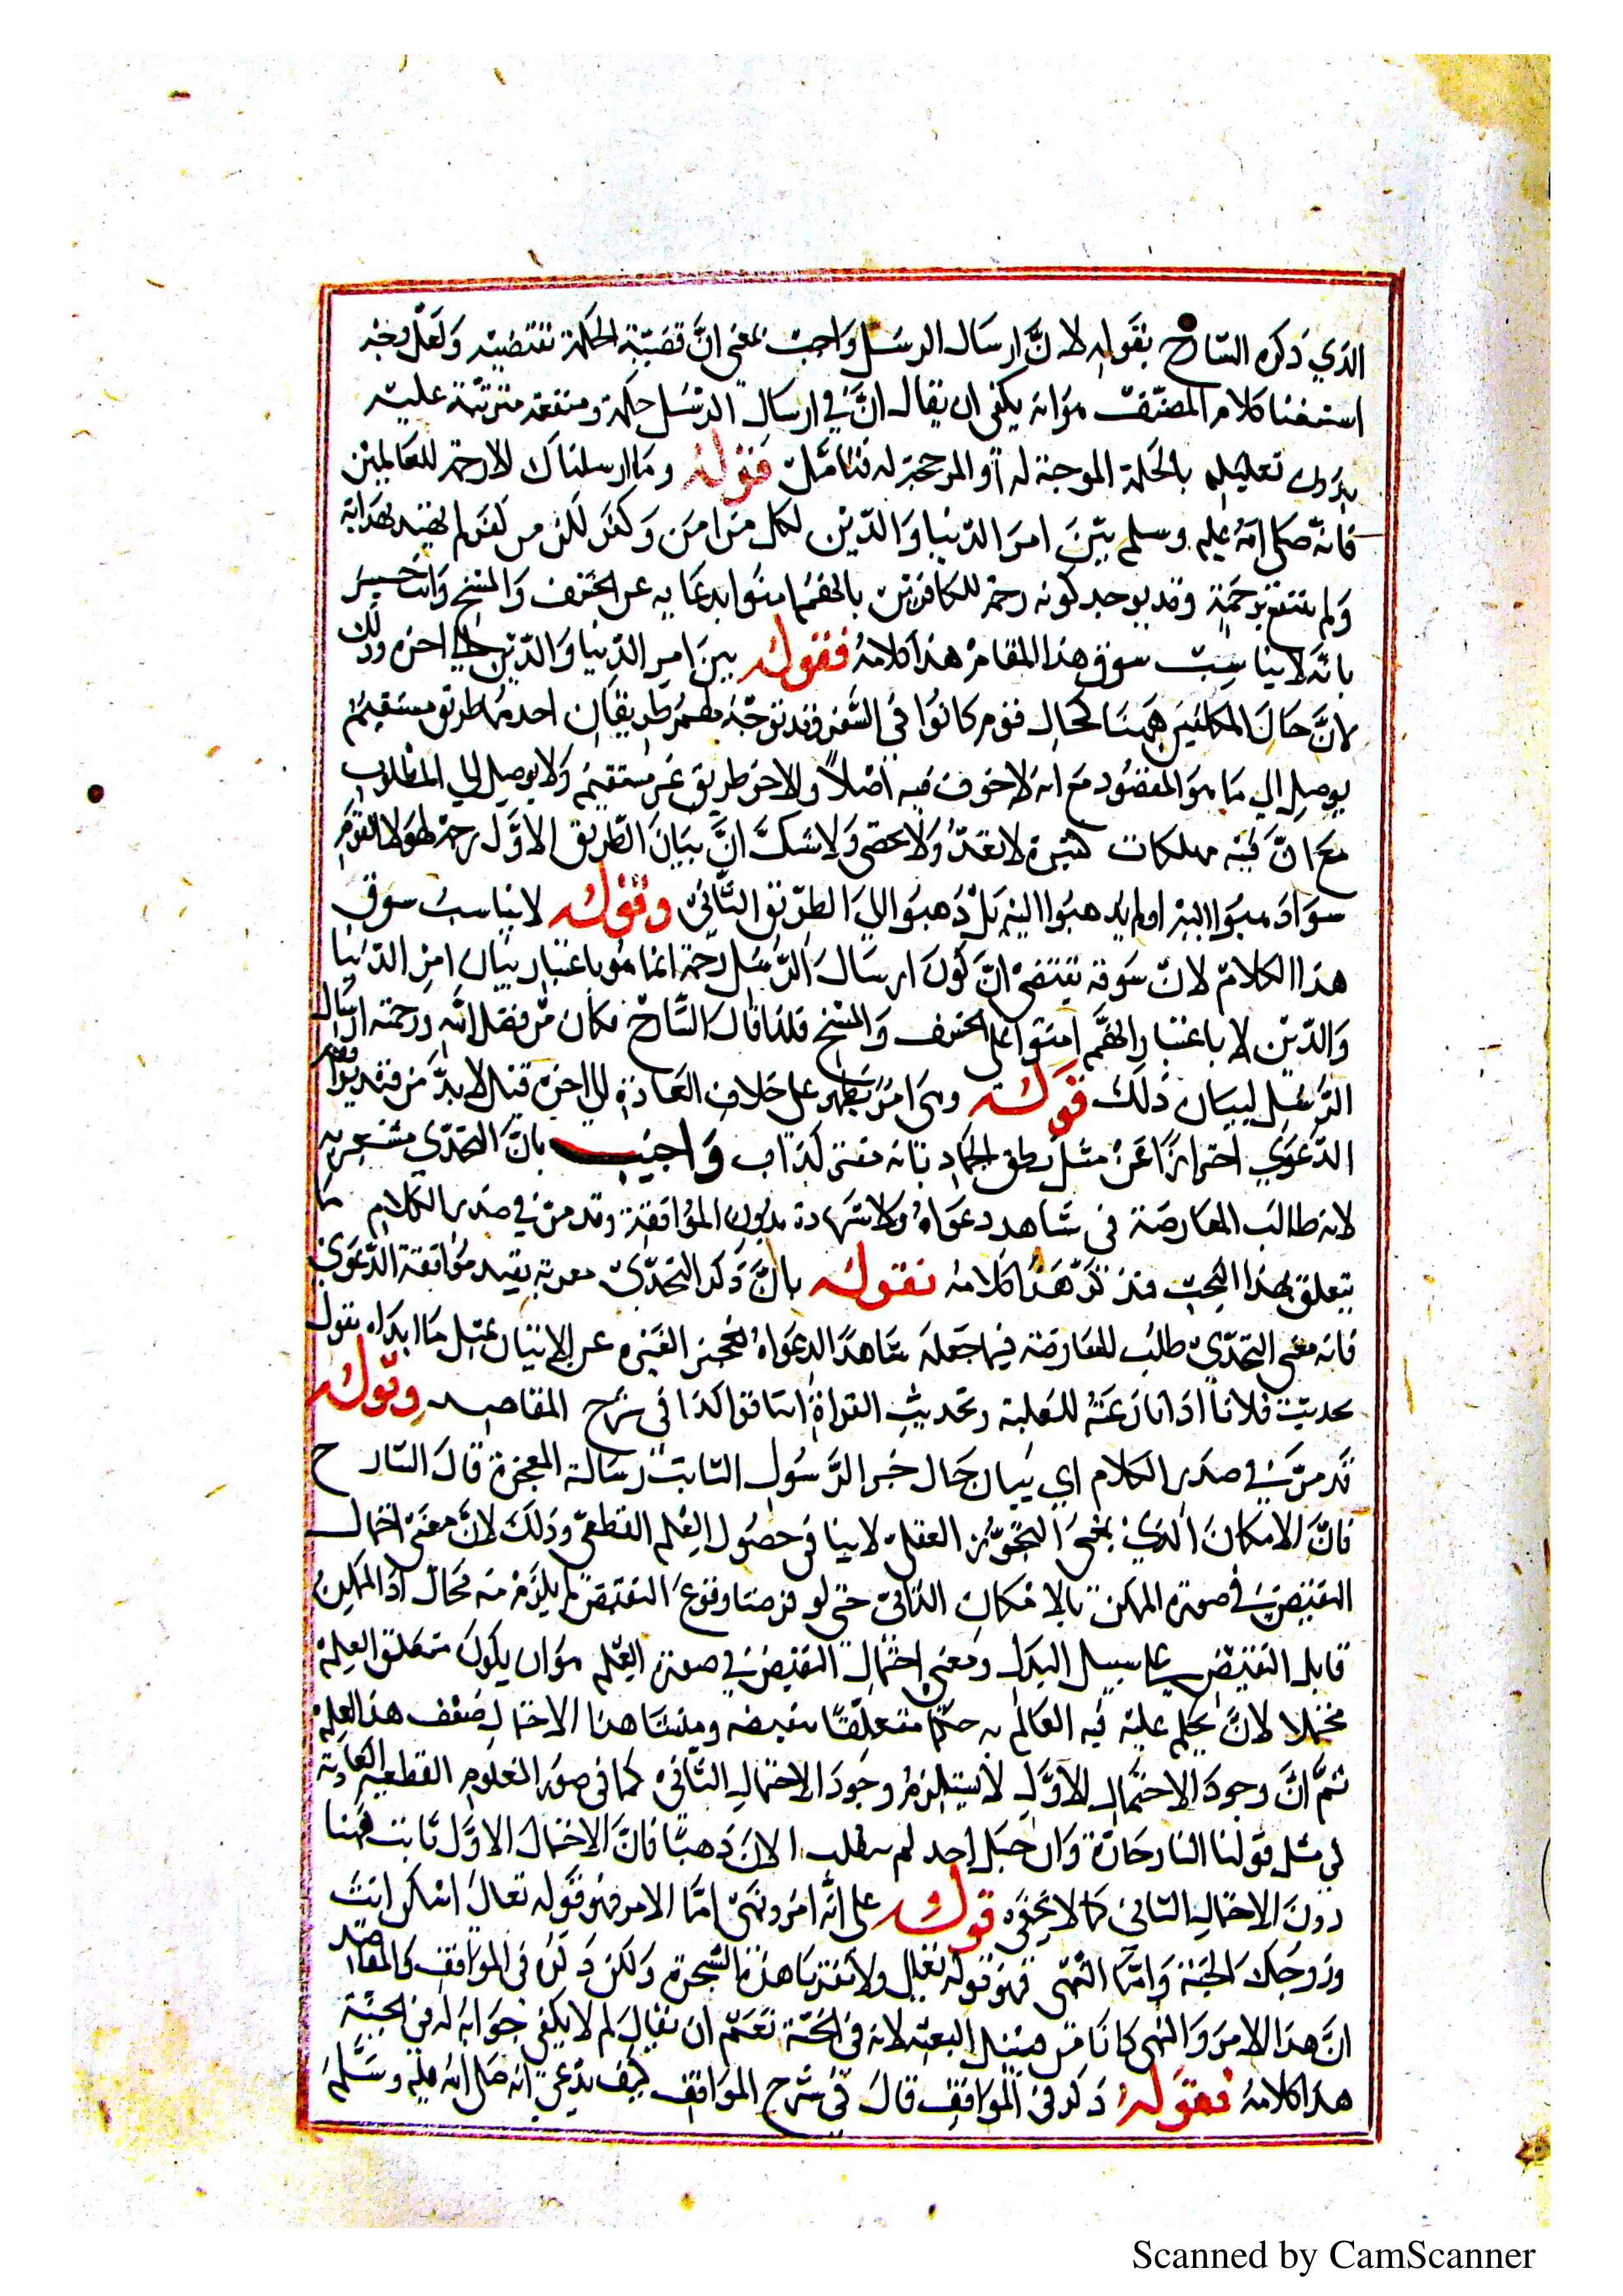 الذي ذكره الشارح بقوله لانّ ارسال الرسل واجب بمعنى انّ قضيّة الحكمة تقتضيه ولعلّ وجه
استيفنا كلام المصنّف هوانه يكفى ان يقال انّ في ارسال الرسل حكمة ومنفعة مترتبة عليه
بدون تعليله بالحكمة الموجبة له او المرجحة له فتامّل قوله وما ارسلناك الا رحمة للعالمين
فانه صلى الله عليه وسلم بيّن امر الدنيا والدّين لكل من امن وكفر لكن من كفر لم يهتد بهدايته
ولم ينتفع برحمته وقد يوجه كونه رحمة للكافرين بانهم امنوا بدعايه عن الخسف والمسخ وانت خبير
بانّه لا يناسب سوق هذا المقام هذا كلامه فقوله بين امر الدنيا والدّين الى اخره وذلك
لانّ حال المكلفين ههنا كحال قوم كانوا في السّفر وقد توجّه لهم طريقان احدهما طريق مستقيم
يوصل الي ما هو المقصود مع انه لا خوف فيه اصلاً والاخر طريق غير مستقيم ولا يوصل الي المطلوب
مع انّ فيه مهلكات كثيرة لا تعدّ ولا تحصى ولا شكّ انّ بيان الطّريق الاوّل رحمة لهولا القوم
سوا ذهبوا اليه او لم يذهبوا اليه بل ذهبوا الي الطريق الثّاني وقوله لا يناسب سوق
هذا الكلام لانّ سوقه يقتضى انّ كون ارسال الرّسل رحمة انما هو باعتبار بيان امر الدّنيا
والدّين لا باعتبار انهم امنوا عن الخسف والمسخ فلذا قال الشّارح فكان من فضل الله ورحمته ارسال
الرّسل لبيان ذلك قوله وهى امر يظهر على خلاف العادة الى اخره قيل لا بدّ من قيد موافقة
الدّعوي احترازاً عن مثل نطق الجماد بانه مفتر كذاب واجيب بانّ التحدّي مشعر به
لانه طالب المعارضة في شاهد دعواه ولا شهادة بدون الموافقة وقد مرّ في صدر الكلام ما
يتعلق بهذا البحث فتذكّر هذا كلامه فقوله بانّ ذكر التحدّي معربة بقيد موافقة الدّعوي
فانه معنى التحدّي طلب المعارضة فيما جعله شاهدًا لدعواه لعجز الغير عن الاتيان بمثل ما ابداه يقول
تحديت فلاناً اذا نازعته للغلبة وتحديت القراة اينا اقرا كذا في شرح المقاصد وقوله
قد مرّ في صدر الكلام اي بيان حال خبر الرّسول الثابت رسالته المعجزة قال الشارح
فانّ الامكان الذي بمعنى التجويز العقلى لا ينافى حصول العلم القطعىّ وذلك لانّ معنى احتمال
النقيض في صورة الممكن بالامكان الذّاتى حتى لو فرضنا وقوع النقيض لم يلزم منه محال اذ الممكن
قابل النقيض على سبيل البدل ومعنى احتمال النقيض في صورة العلم هو ان يكون متعلق العلم
محتملا لان يحكم عليه فيه العالم به حكمًا متعلقًا بنقيضه ومنشا هذا الاحتمال ضعف هذا العلم
ثمّ انّ وجود الاحتمال الاوّل لا يستلزم وجود الاحتمال الثّاني كما فى صور العلوم القطعية العادية
في مثل قولنا النار حارّة وان جبل احد لم ينقلب الان ذهبًا فانّ الاحتمال الاوّل ثابت ههنا
دون الاحتمال الثّاني كما لا يخفى قوله على انّه امر ونهى امّا الامر فهو قوله تعالى اسكن انت
وزوجك الجنة وامّا النّهى فهو قوله تعالى ولا تقربا هذه الشّجرة ولكن ذكر فى المواقف والمقاصد
انّ هذا الامر والنهى كانا من قبيل البعثة لانه فى الجنّة نعم ان يقال لم لا يكفى جوابه له في الجنّة
هذا كلامه فقوله ذكر فى المواقف قال فى شرح المواقف كيف يدّعى انه صلى الله عليه وسلّم
Scanned by CamScanner